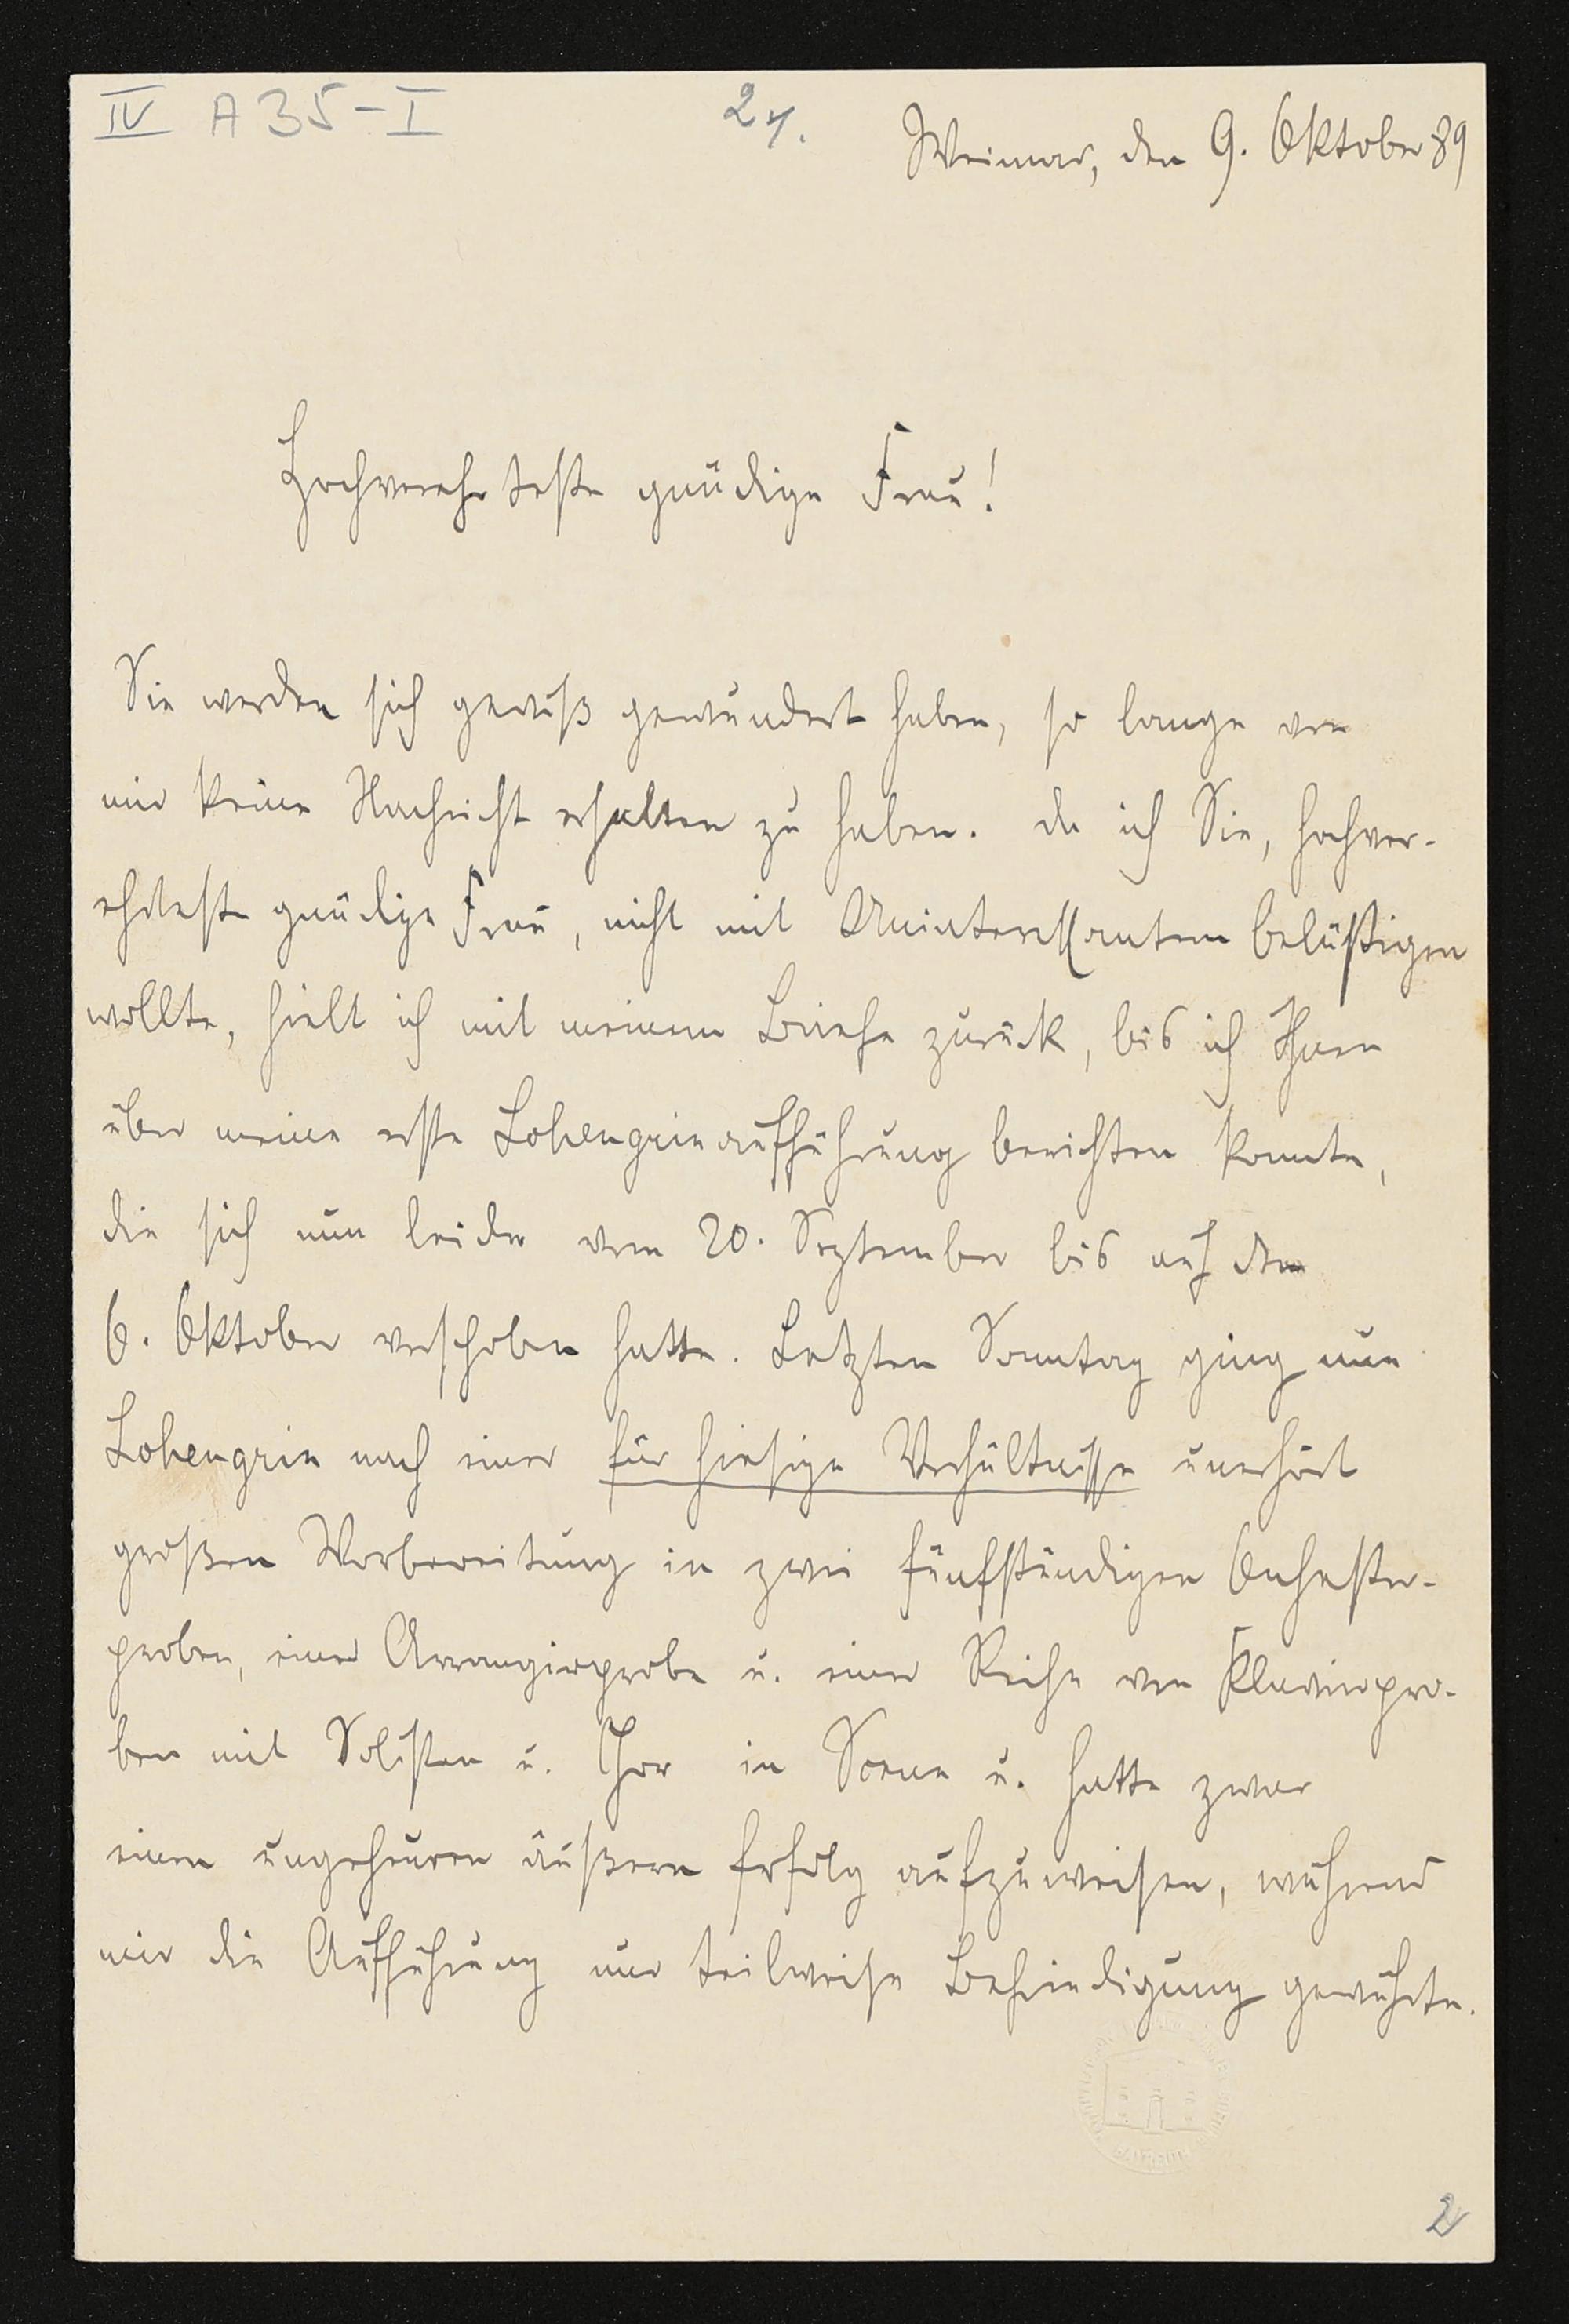 IV A 35-I
24.
Weimar, den 9. Oktober 89
Hochverehrteste gnädige Frau!
Sie werden sich gewiß gewundert haben, so lange von
mir keine Nachricht erhalten zu haben. Da ich Sie, hochver-
ehrteste gnädige Frau, nicht mit Uninteressantem belästigen
wollte, hielt ich mit meinem Briefe zurück, bis ich Ihnen
über meine erste Lohengrinaufführung berichten konnte,
die sich nun leider vom 20. September bis auf den
6. Oktober verschoben hatte. Letzten Sonntag ging nun
Lohengrin nach einer für hiesige Verhältnisse unerhört
großen Vorbereitung in zwei fünfstündigen Orchester-
proben, einer Arrangirprobe u. einer Reihe von Klavierpro-
ben mit Solisten u. Chor in Scene u. hatte zwar
einen ungeheuren äußern Erfolg aufzuweisen, während
mir die Aufführung nur teilweise Befriedigung gewährte.
2